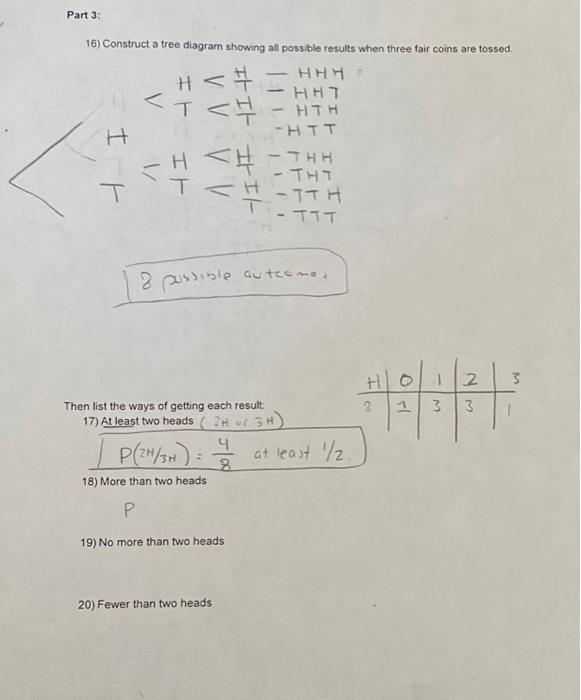 Part 3:
16) Construct a tree diagram showing all possible results when three fair coins are tossed.
H < H T — HHH
— HHT
< T < H T - HTH
- HTT
H
T
< H < H T - THH
- THT
T < H T - TTH
- TTT
8 possible outcomes
H 0 1 2 3
1 3 3 1
Then list the ways of getting each result:
17) At least two heads (2H or 3H)
P(2H/3H) = 4/8 at least 1/2.
18) More than two heads
P
19) No more than two heads
20) Fewer than two heads